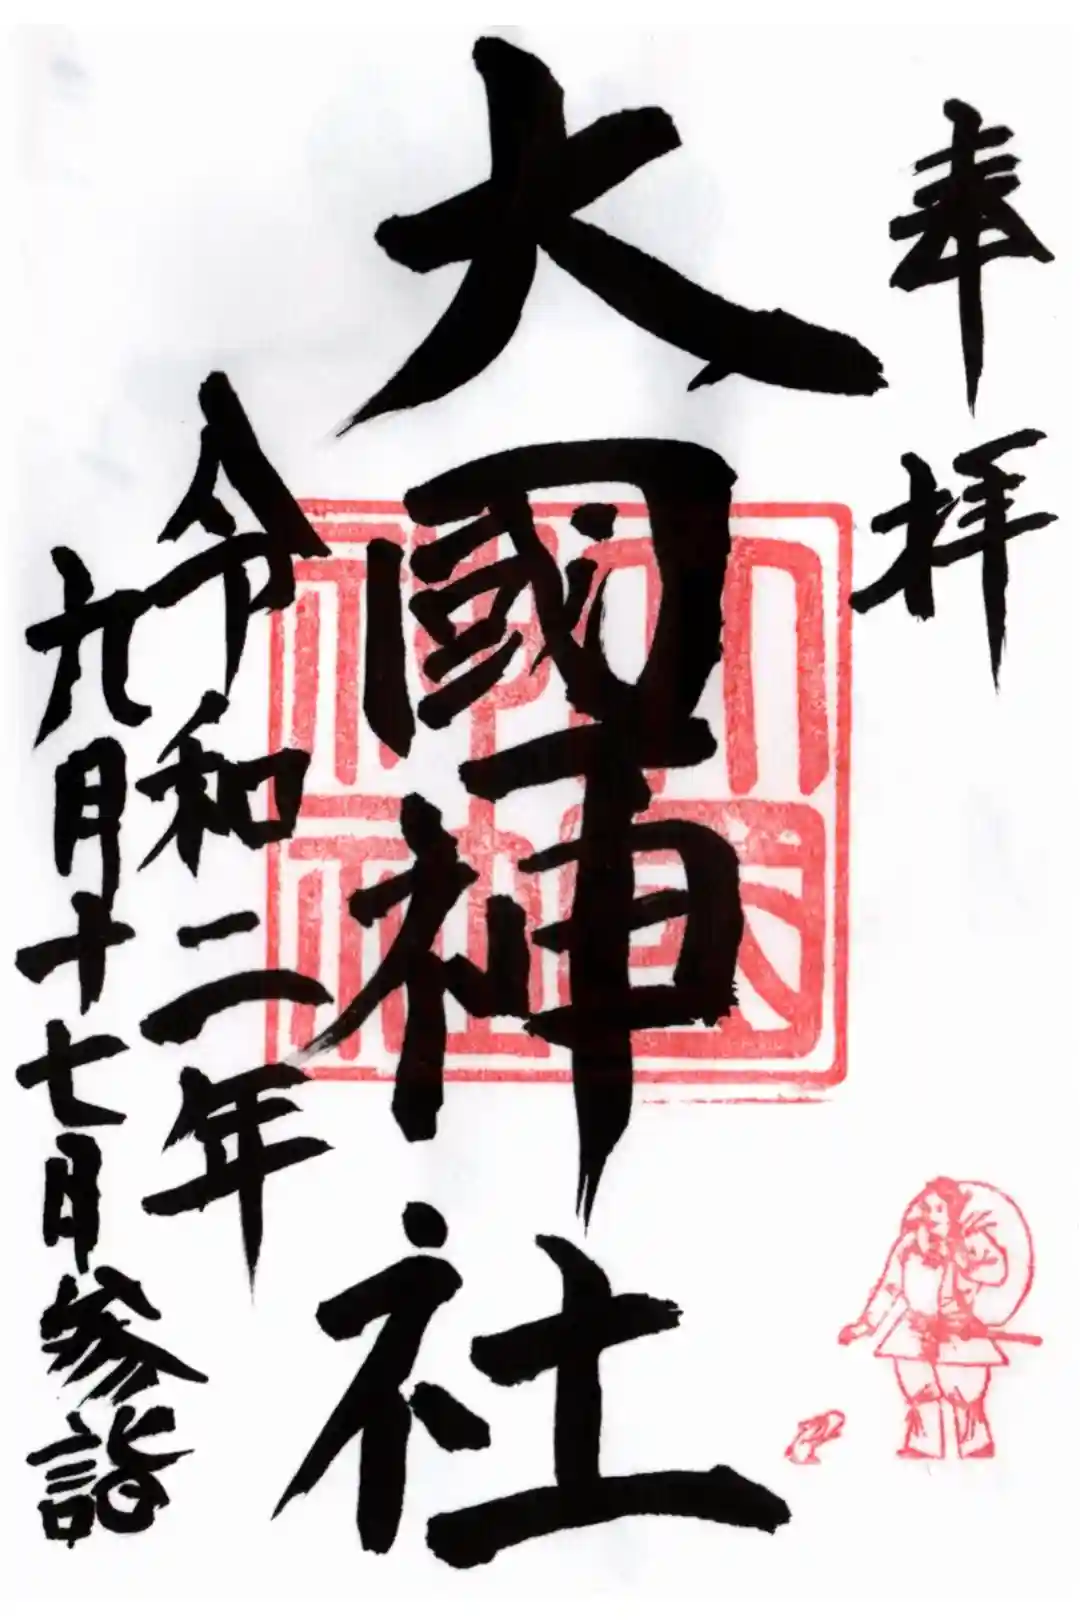 奉拝
大國神社
令和二年
九月十七日参詣
大國
神社